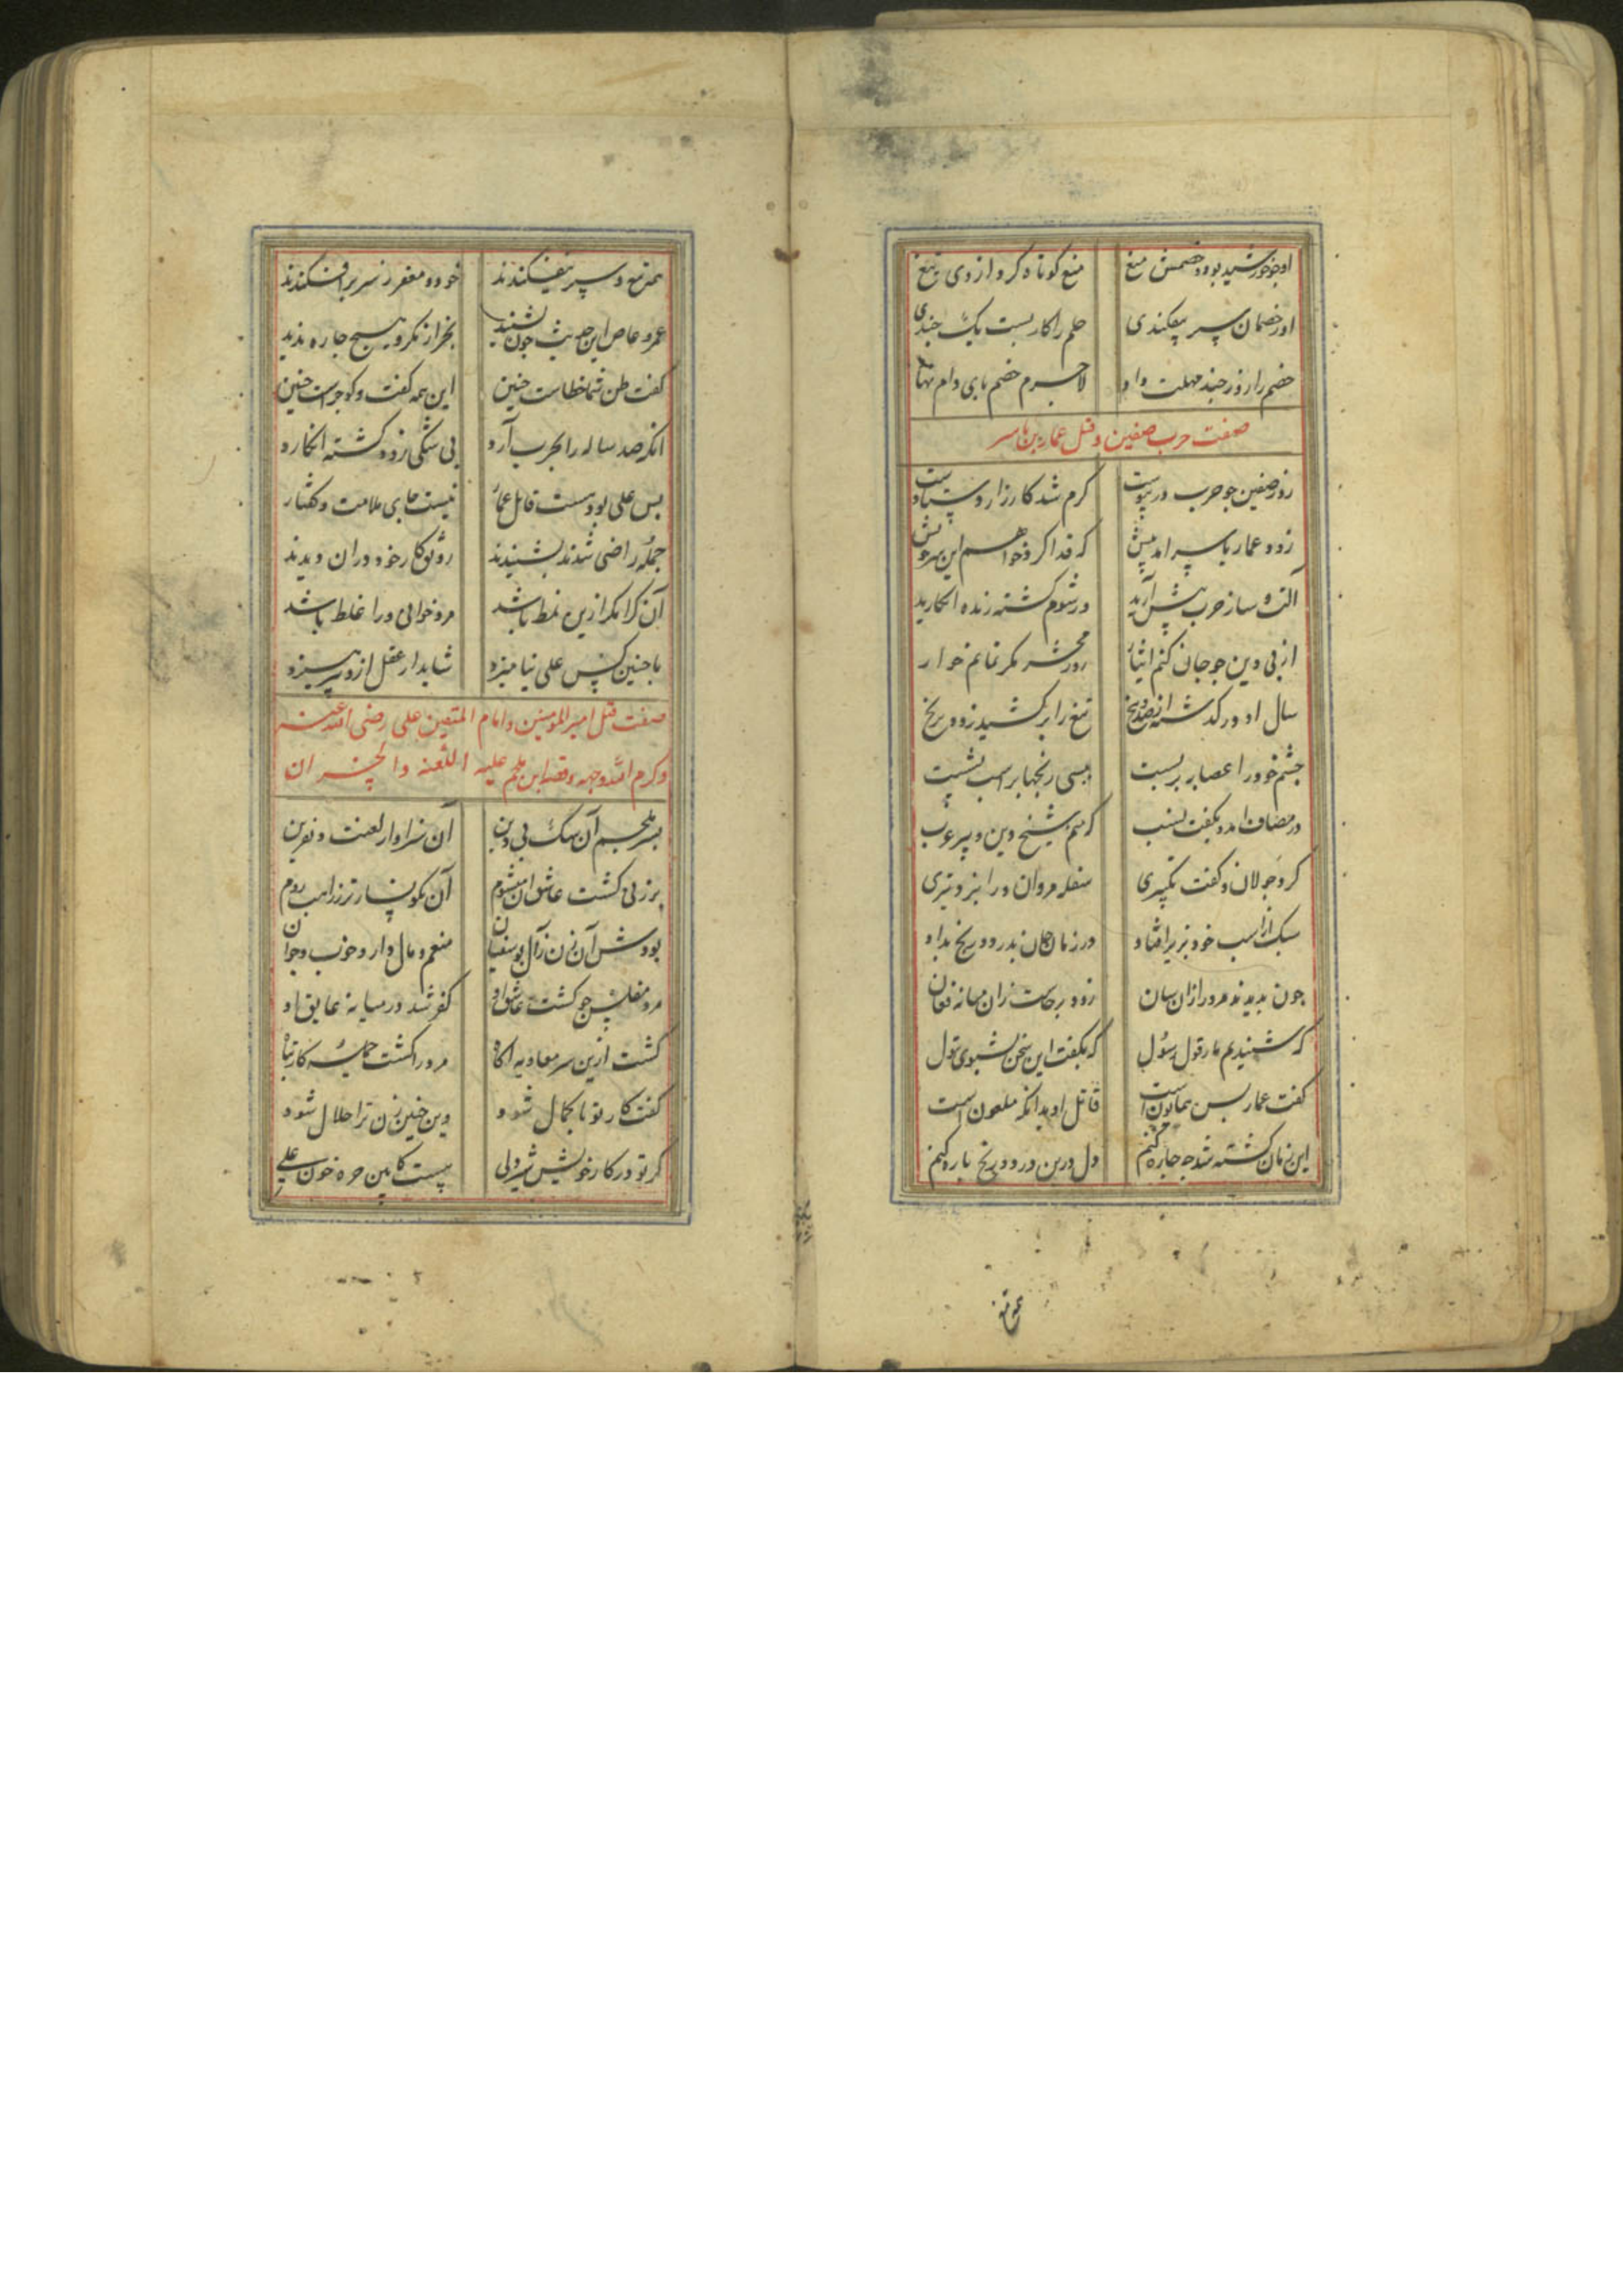 او چو خورشید بود و خصمش میغ میغ کوتاه کرد از وی تیغ
او ز خصمان سپر بیفکندی حلم را کار بست یک چندی
خصم را روز چند مهلت داد لاجرم خصم پای دام نهاد
صفت حرب صفین و قتل عمار بن یاسر
روز صفین جو حرب در پیوست کرم شد کارزار و
زود عمار یاسر امد پیش که فدا کرد خواهم این سر خویش
آلت و ساز حرب پیش آرید ور شوم کشته زنده انکارید
از پی دین جو جان کنم ایثار روز محشر مکر نمانم خوار
سال او در کذشته از صد و پنج تیغ را برکشید زود برنج
جشم خود را عصابه بر بست بسی رنجها بر اسب نشست
در مصاف امد و بکفت نسب که منم شیخ دین و پیر عرب
کرد جولان و کفت تکبیری سفله مروان ورا بزد تیری
سبک از اسب خود بزیر افتاد در زمان جان بدرد و رنج بداد
جون بدیدند مرد را زان سان زود برخاست زان میانه فغان
که شنیدیم ما ز قول رسول که بکفت این سخن بشوی بتول
کفت عمار بس همایونست قاتل او بدانکه ملعون است
این زمان کشته شد جه جاره کنیم دل درین درد و رنج باره کنیم
همه تیغ و سپر بیفکندند خود و مغفر ز سر برافکندند
عمرو عاص این حدیث جون بشنید بجز از مکر و هیچ جاره ندید
کفت ظن شما خطاست جنین این همه کفت و کوی جراست جنین
انکه صد ساله را بحرب آرد بی شکی زود کشته انکارد
بس علی بودهست قاتل عمار نیست جای ملامت و کفتار
جمله راضی شدند بشنیدند رونق کار خود دران دیدند
آن کرا مکر ازین نمط باشد مرد خوانی ورا غلط باشد
با جنین کس علی نیامیزد شاید ار عقل ازو بپرهیزد
صفت قتل امیر المؤمنین و امام المتقین علی رضی الله عنه
و کرم الله وجهه و قصه ابن ملجم علیه اللعنه و الخسران
بسر ملجم آن سک بی دین آن سزاوار لعنت و نفرین
بر زنی کشت عاشق ان میشوم آن نکونسارتر ز راهب روم
بود ش آن زن ز آل بو سفیان منعم و مال دار و خوب و جوان
مرد مفلس جو کشت عاشق او کفر شد در میانه عایق او
کشت ازین سر معاویه اکاه مرد را کشت جمله کار تباه
کفت کار تو با کمال شود وین جنین زن ترا حلال شود
کر تو در کار خویش شیر دلی هست کابین حره خون علی